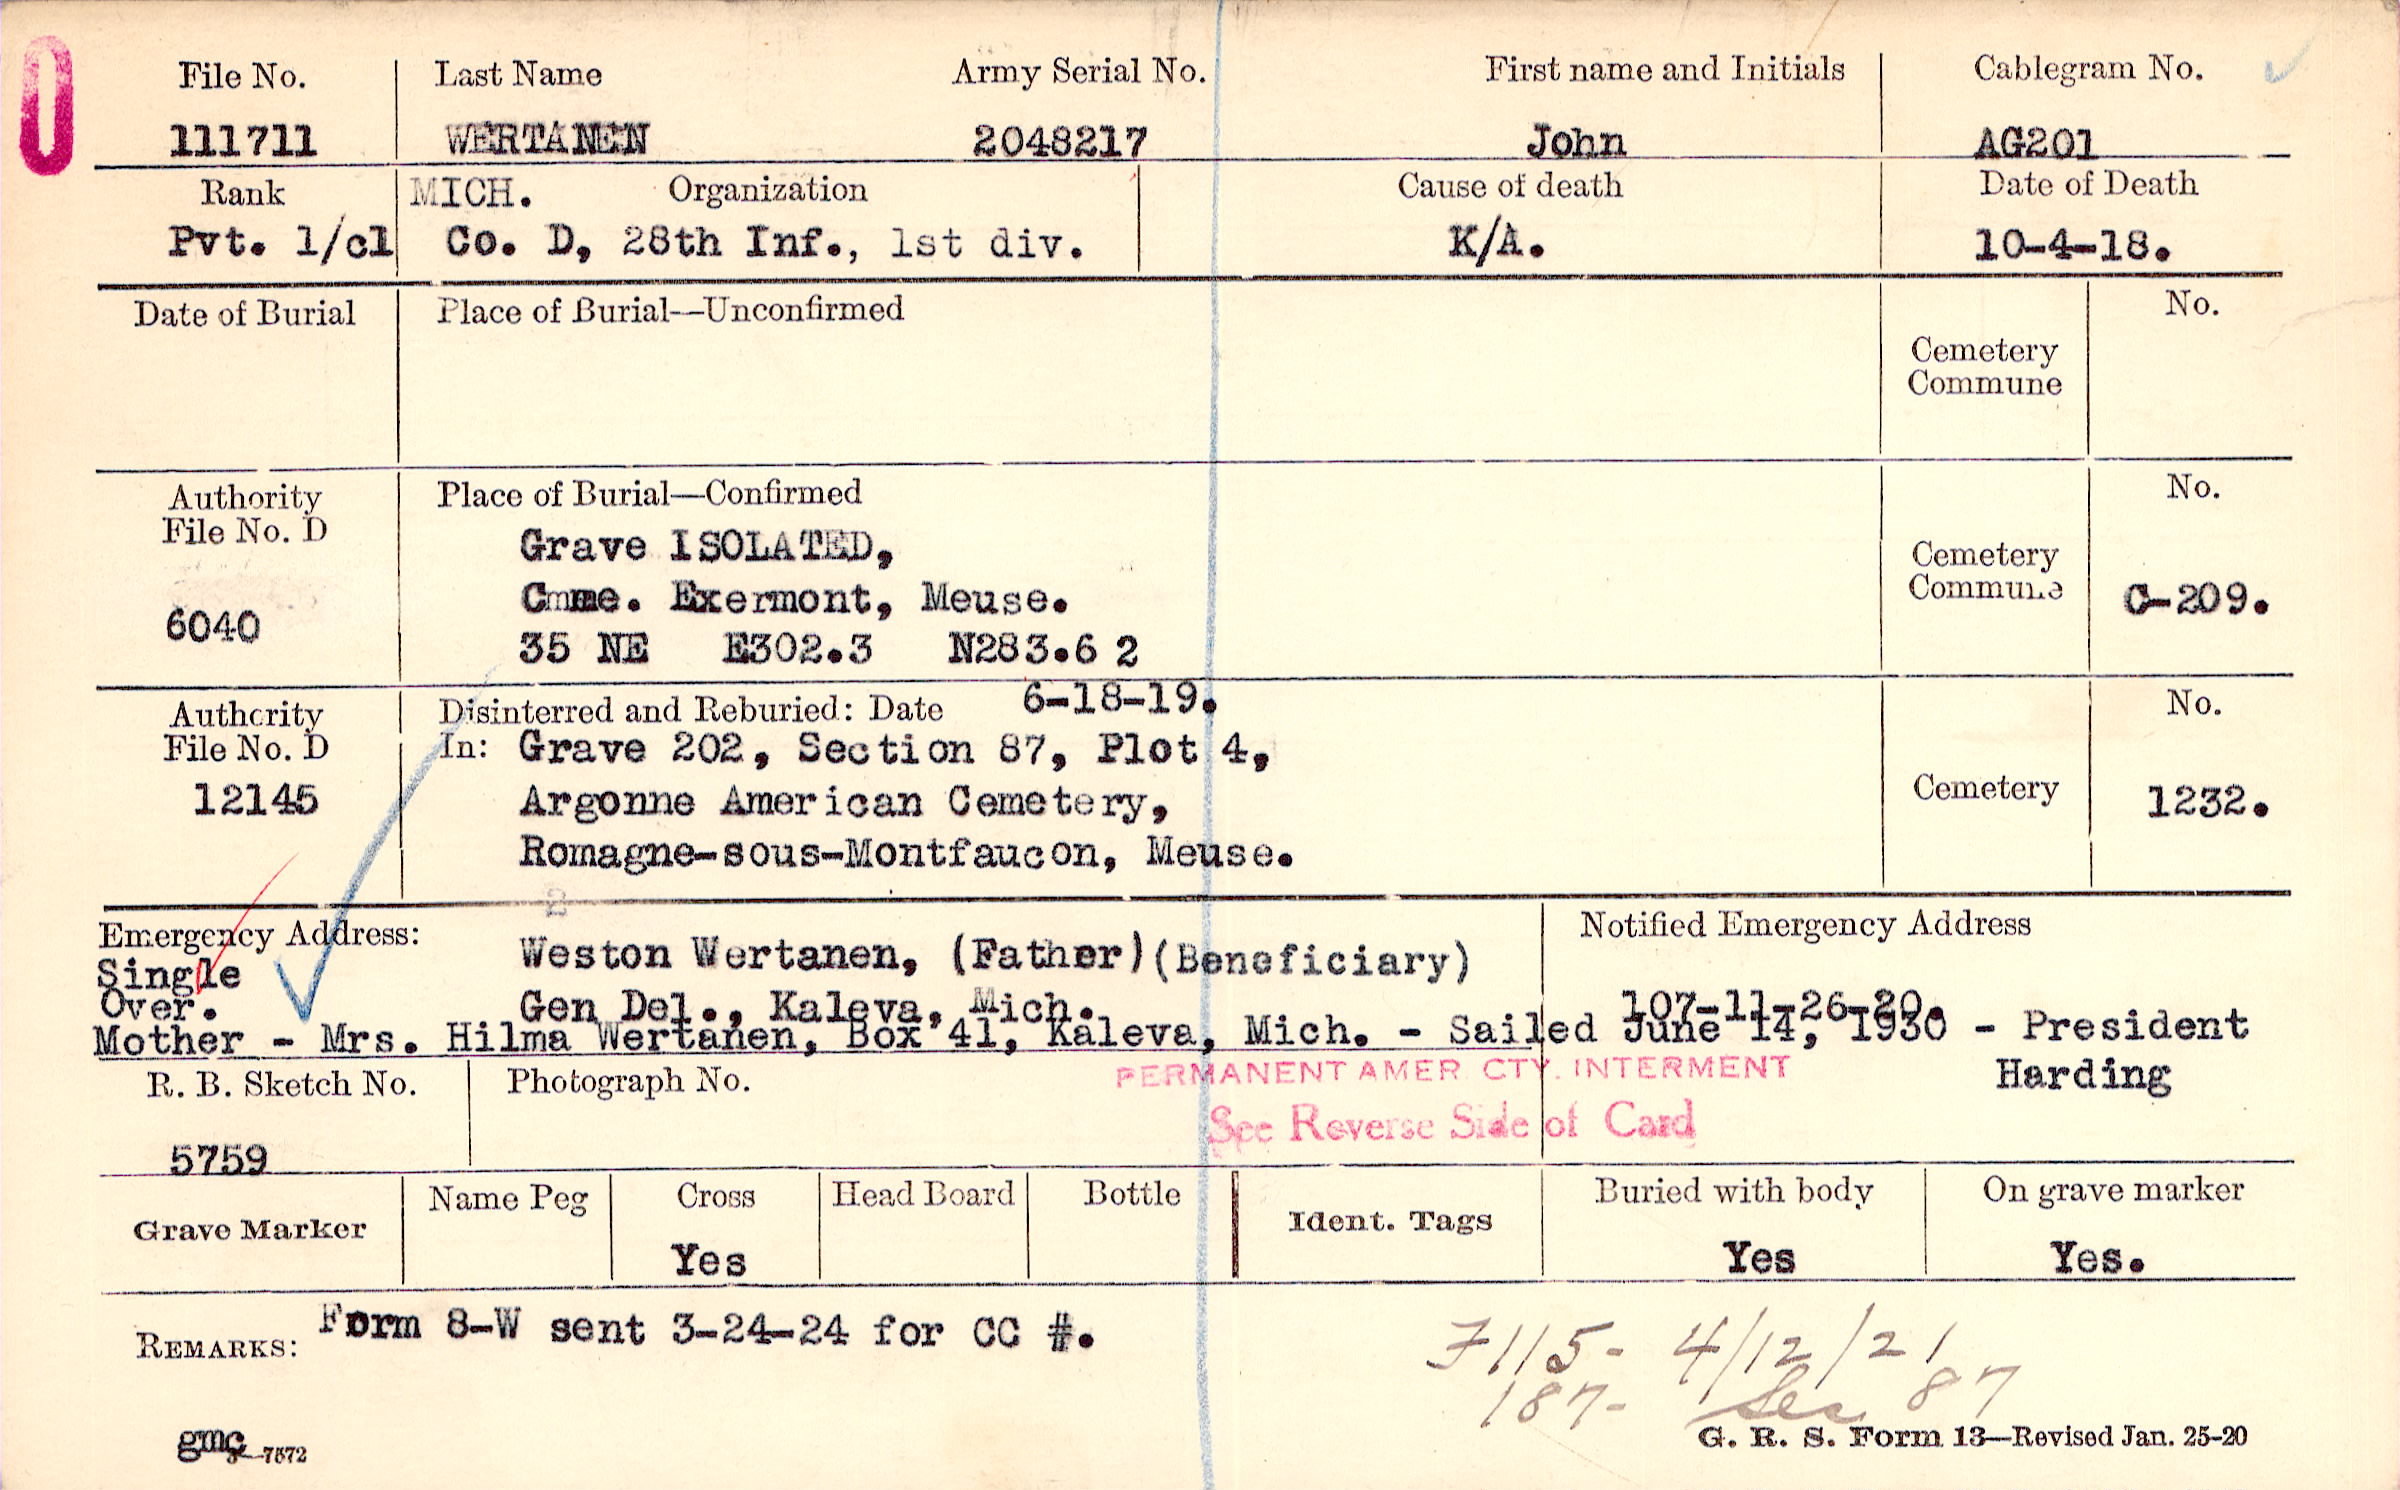 0
File No. Last Name Army Serial No. First name and Initials Cablegram No.
111711 WERTANEN 2048217 John AG201
Rank MICH. Organization Cause of death Date of Death
Pvt. 1/cl Co. D, 28th Inf., 1st div. K/A. 10-4-18.
Date of Burial Place of Burial—Unconfirmed No.
Cemetery
Commune
Authority Place of Burial—Confirmed No.
File No. D Grave ISOLATED,
Cemetery
6040 Cmme. Exermont, Meuse. Commune C-209.
35 NE E302.3 N283.6 2
Authority Disinterred and Reburied: Date 6-18-19. No.
File No. D In: Grave 202, Section 87, Plot 4,
12145 Argonne American Cemetery, Cemetery 1232.
Romagne-sous-Montfaucon, Meuse.
2
Emergency Address: Notified Emergency Address
Single Weston Wertanen, (Father)(Beneficiary)
Over. Gen Del., Kaleva, Mich. 107-11-26-20.
Mother - Mrs. Hilma Wertanen, Box 41, Kaleva, Mich. - Sailed June 14, 1930 - President
Harding
R. B. Sketch No. Photograph No. PERMANENT AMER CTY. INTERMENT
See Reverse Side of Card
5759
Grave Marker Name Peg Cross Head Board Bottle Ident. Tags Buried with body On grave marker
Yes Yes Yes.
REMARKS: Form 8-W sent 3-24-24 for CC #.
F115- 4/12/21
187- Sec 87
gmc 3—7572 G. R. S. Form 13—Revised Jan. 25-20